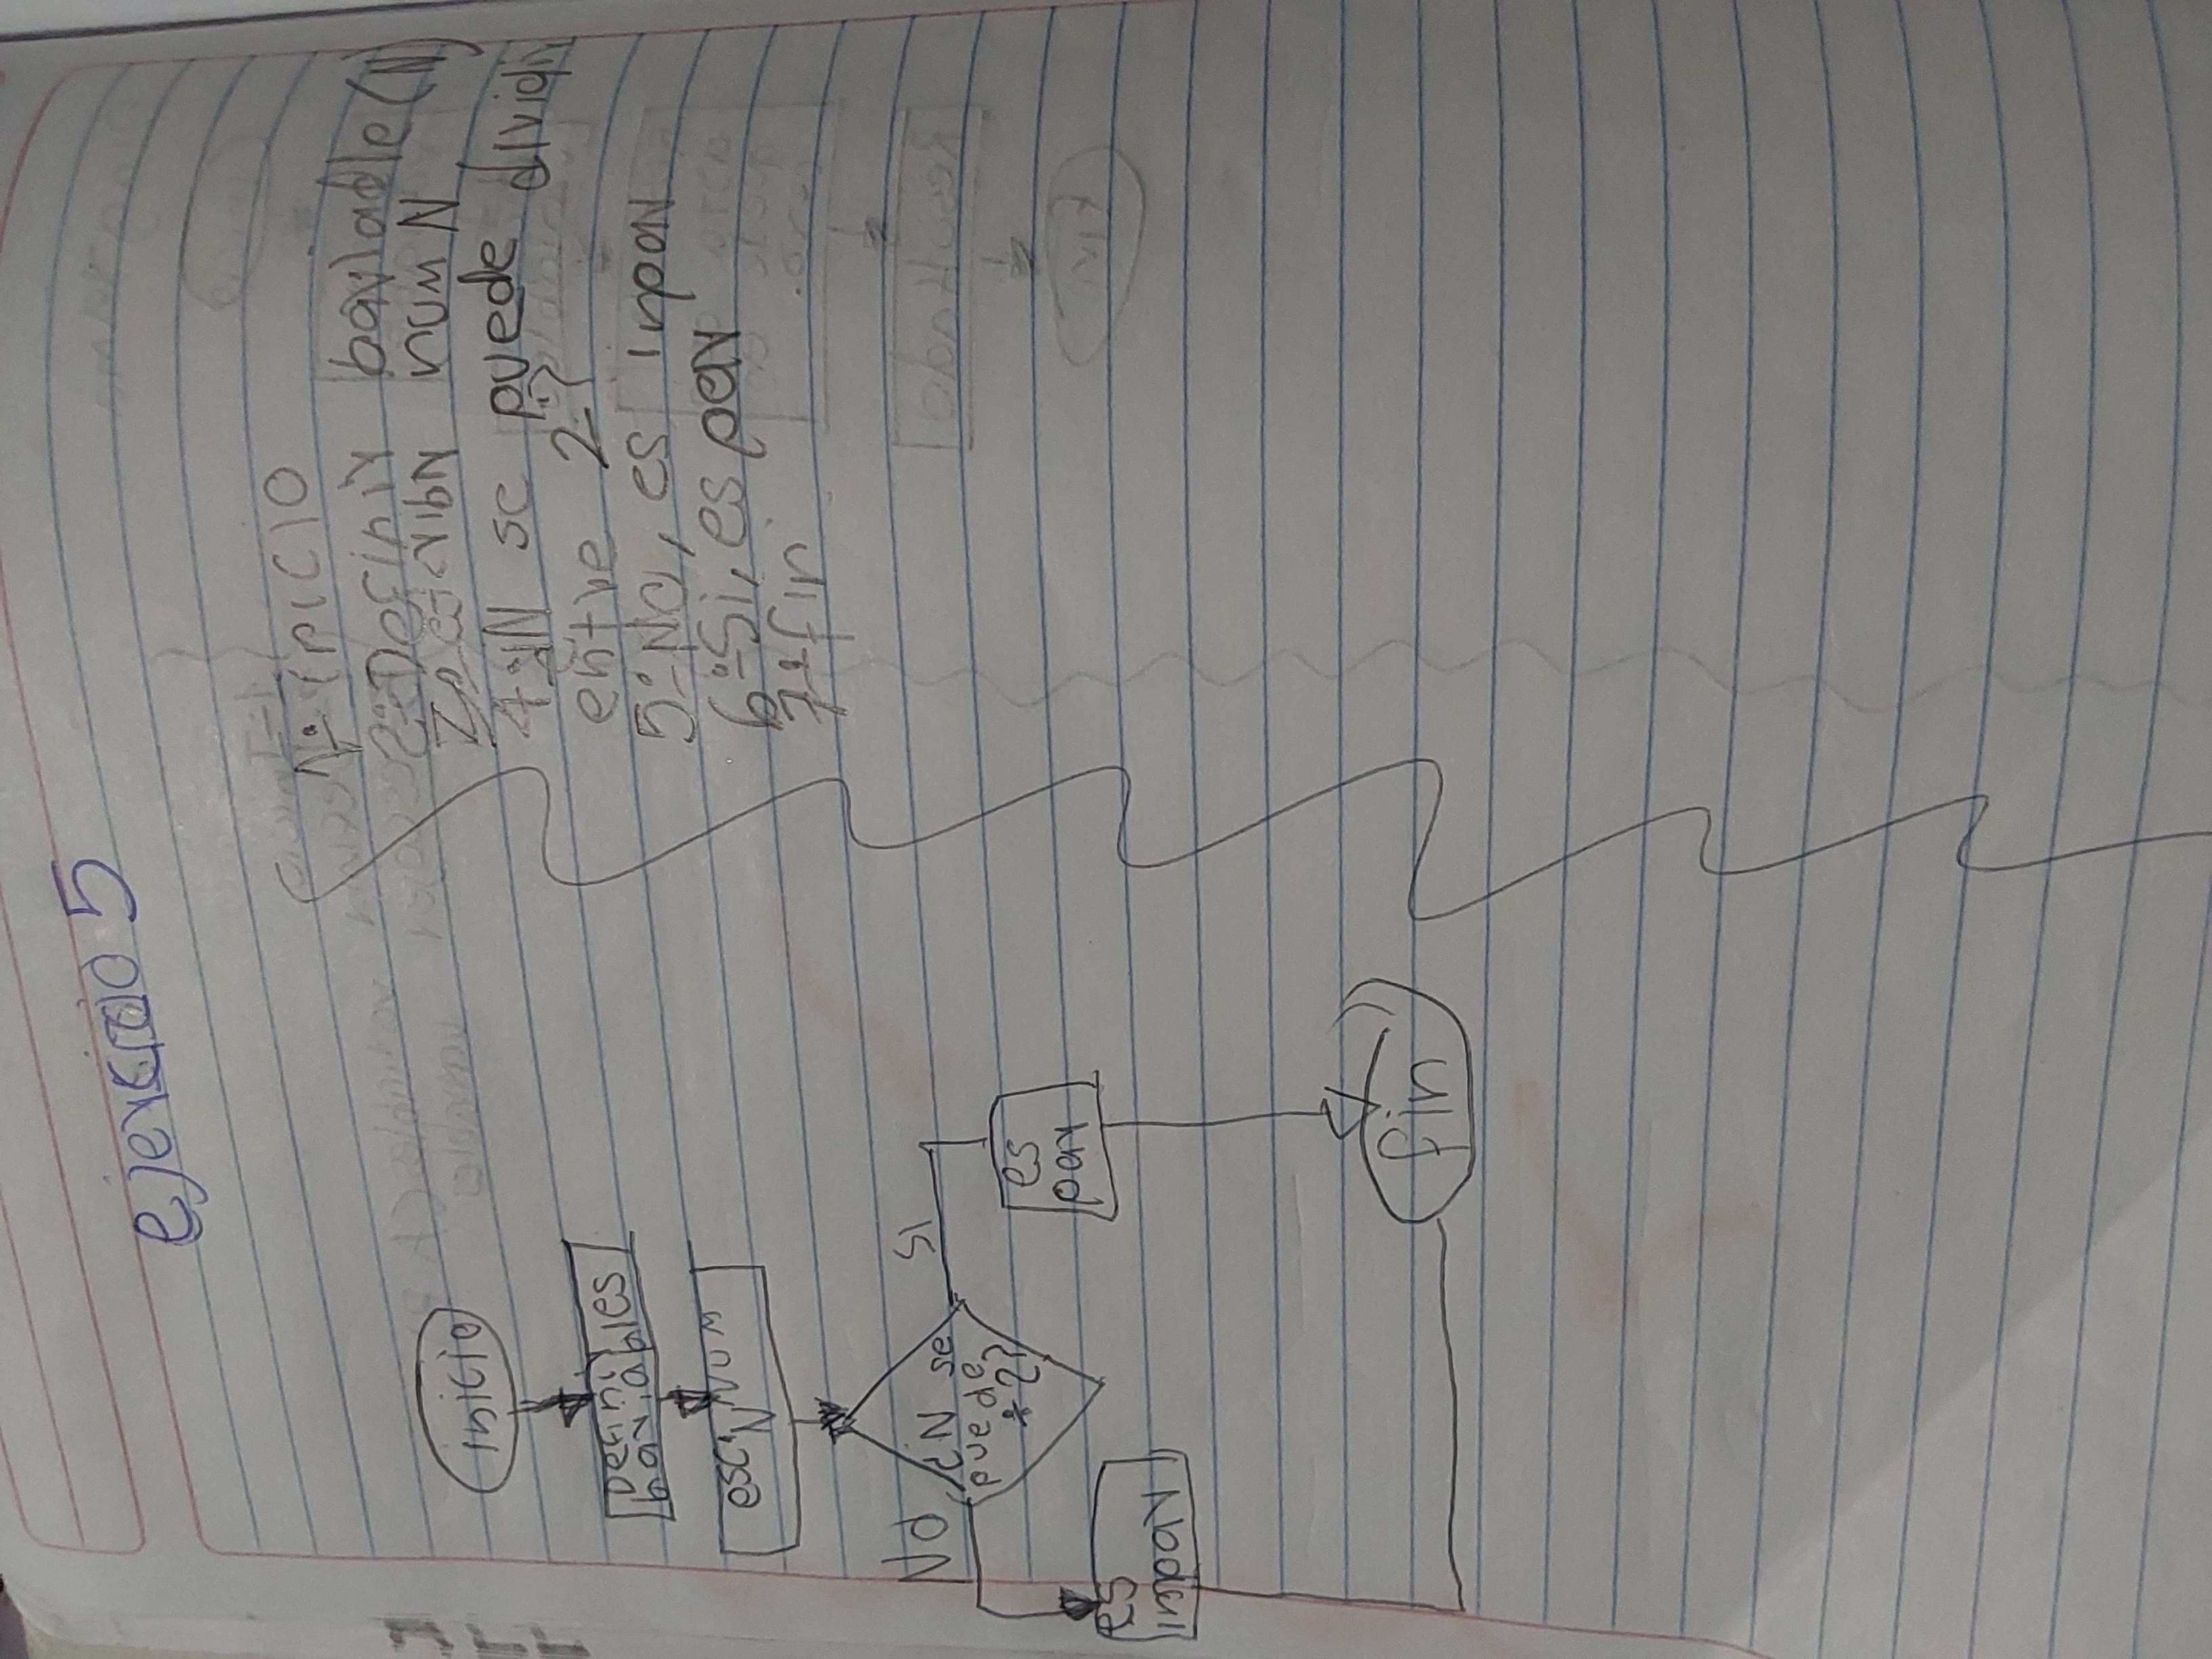 ejercicio 5
inicio
Definir
bariables
esc N num
¿N se
puede
* 2?
No
si
es
inpar
es
par
fin
1.- inicio
2.- Definir bariable (N)
3.- escribir num N
4.- ¿N se puede dividir
entre 2?
5.- No, es inpar
6.- Si, es par
7.- fin
Resultado
fin